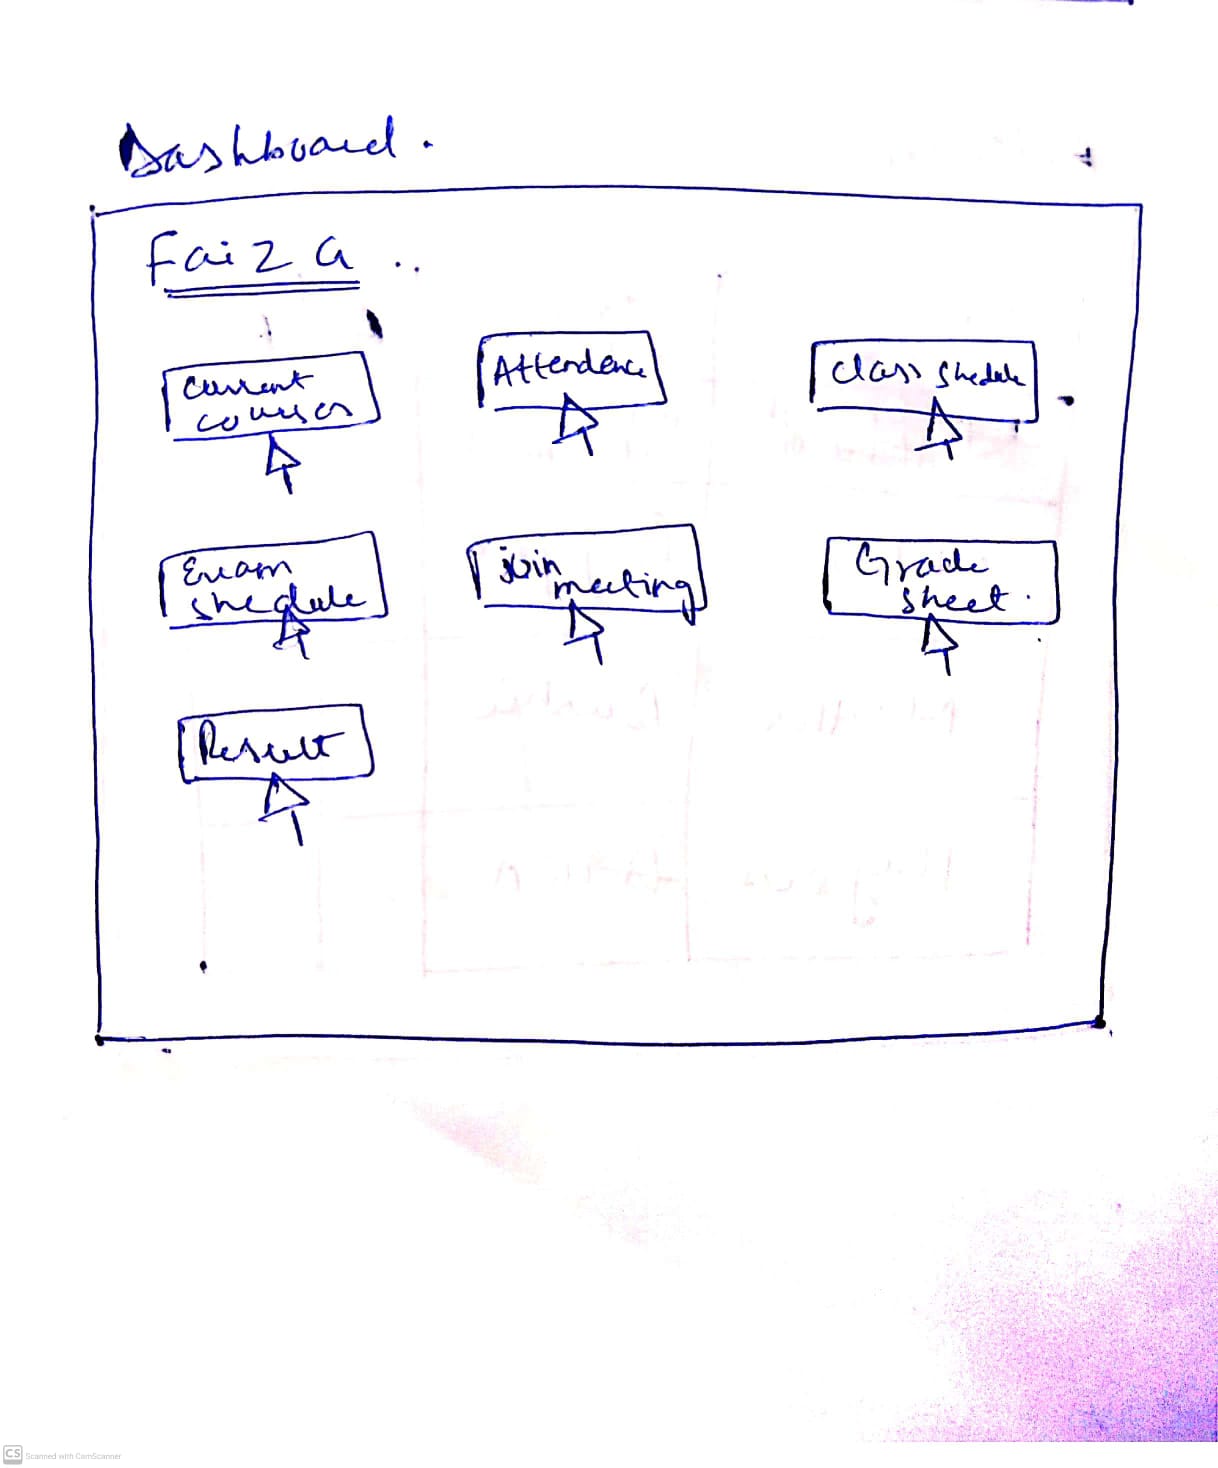 Dashboard.
Faiza ..
Current
courses
Attendence
Class shedule
Exam
shedule
join
meeting
Grade
sheet.
Result
CS Scanned with CamScanner